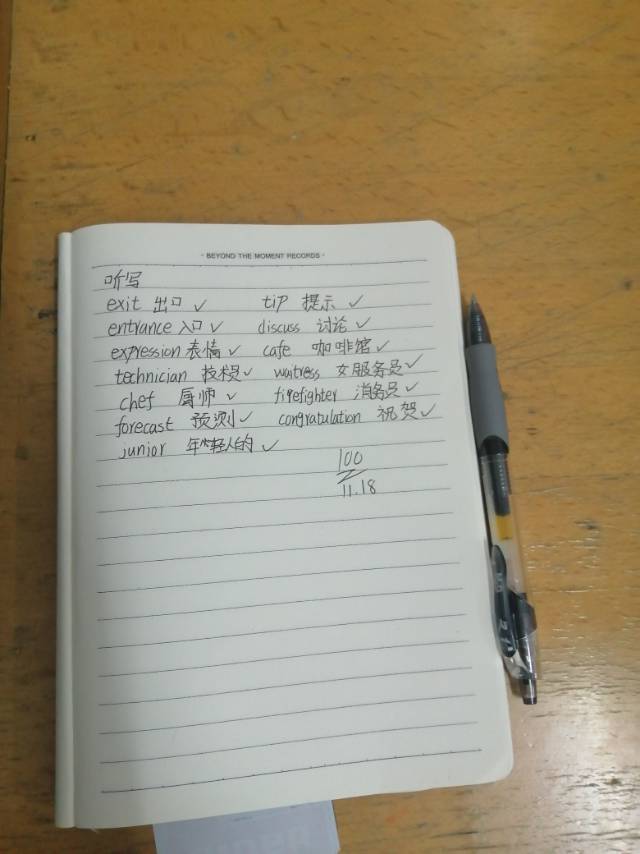 · BEYOND THE MOMENT RECORDS ·
听写
exit 出口 ✓ tip 提示 ✓
entrance 入口 ✓ discuss 讨论 ✓
expression 表情 ✓ cafe 咖啡馆 ✓
technician 技术员 ✓ waitress 女服务员 ✓
chef 厨师 ✓ firefighter 消务员 ✓
forecast 预测 ✓ congratulation 祝贺 ✓
junior 年轻人的 ✓
100
11.18